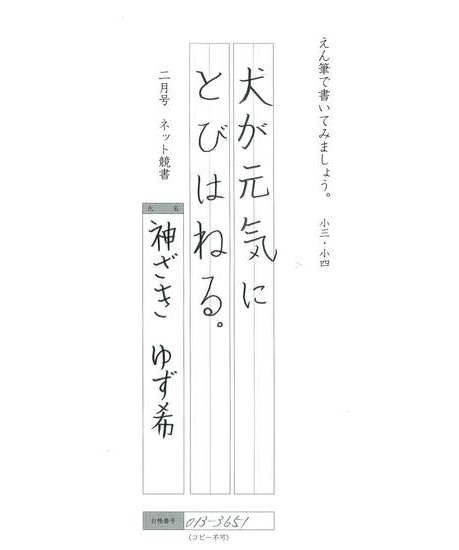 えん筆で書いてみましょう。 小三・小四
犬が元気に
とびはねる。
二月号 ネット競書
氏名
神ざき ゆず希
台帳番号 013-3651
(コピー不可)